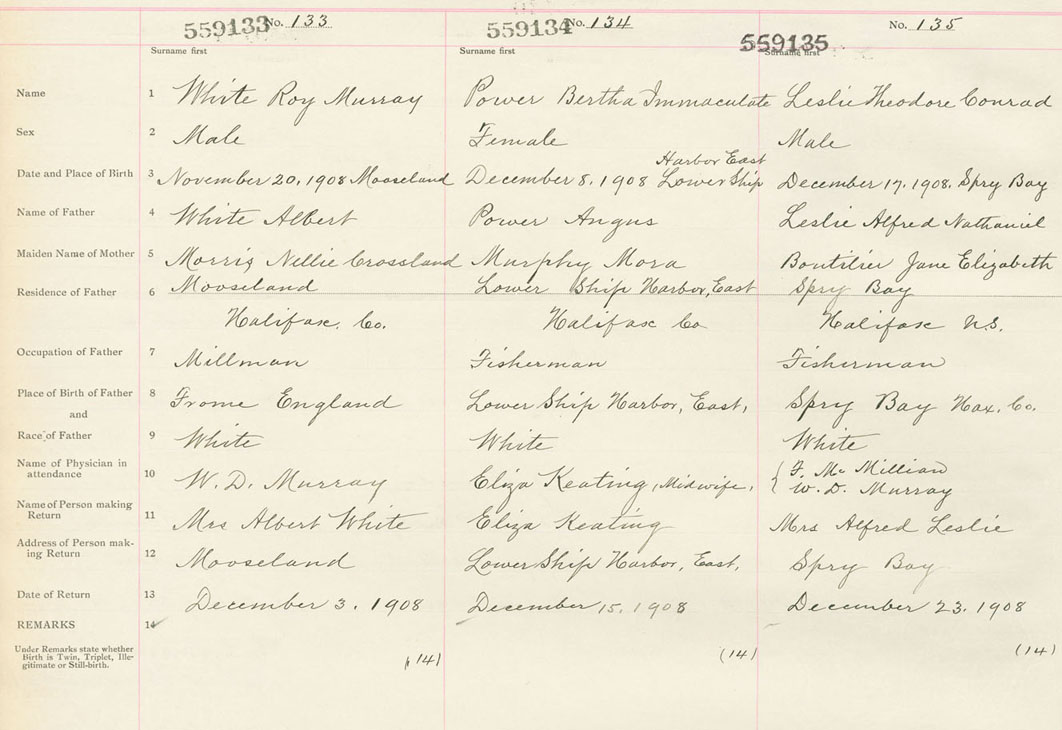 559133 No. 133 559134 No. 134 559135 No. 135
Surname first Surname first Surname first
Name 1 White Roy Murray Power Bertha Immaculate Leslie Theodore Conrad
Sex 2 Male Female Male
Harbor East
Date and Place of Birth 3 November 20, 1908 Mooseland December 8, 1908 Lower Ship December 17, 1908. Spry Bay
Name of Father 4 White Albert Power Angus Leslie Alfred Nathaniel
Maiden Name of Mother 5 Morris Nellie Crossland Murphy Mora Boutilier Jane Elizabeth
Residence of Father 6 Mooseland Lower Ship Harbor, East Spry Bay
Halifax. Co. Halifax Co Halifax N.S.
Occupation of Father 7 Millman Fisherman Fisherman
Place of Birth of Father 8 Frome England Lower Ship Harbor, East, Spry Bay Hax. Co.
and
Race of Father 9 White White White
Name of Physician in attendance 10 W. D. Murray Eliza Keating, Midwife, { F. Mc Millian
W. D. Murray
Name of Person making Return 11 Mrs Albert White Eliza Keating Mrs Alfred Leslie
Address of Person mak-
ing Return 12 Mooseland Lower Ship Harbor, East, Spry Bay
Date of Return 13 December 3. 1908 December 15, 1908 December 23. 1908
REMARKS 14
Under Remarks state whether
Birth is Twin, Triplet, Ille-
gitimate or Still-birth.
(14) (14) (14)